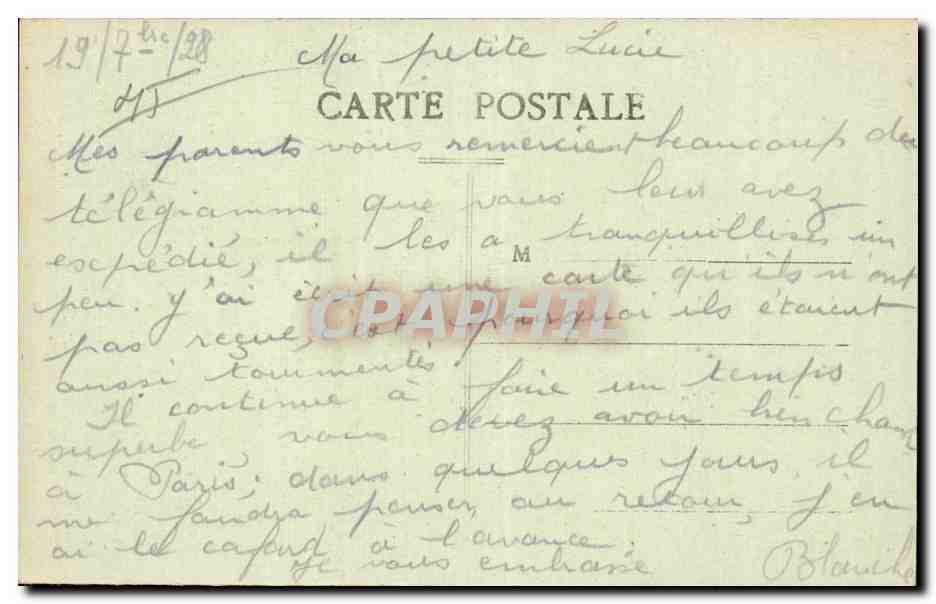 19/7bre/28
Ma petite Lucie
CARTE POSTALE
Mes parents vous remercient beaucoup du
télégramme que vous leur avez
expédié, il les a tranquillisés un
M
peu. J'ai écrit une carte qu'ils n'ont
CPAPHIL
pas reçue, c'est pourquoi ils étaient
aussi tourmentés.
Il continue à faire un temps
superbe, vous devez avoir bien chaud
à Paris; dans quelques jours il
me faudra penser au retour, j'en
ai le cafard à l'avance.
Je vous embrasse
Blanche